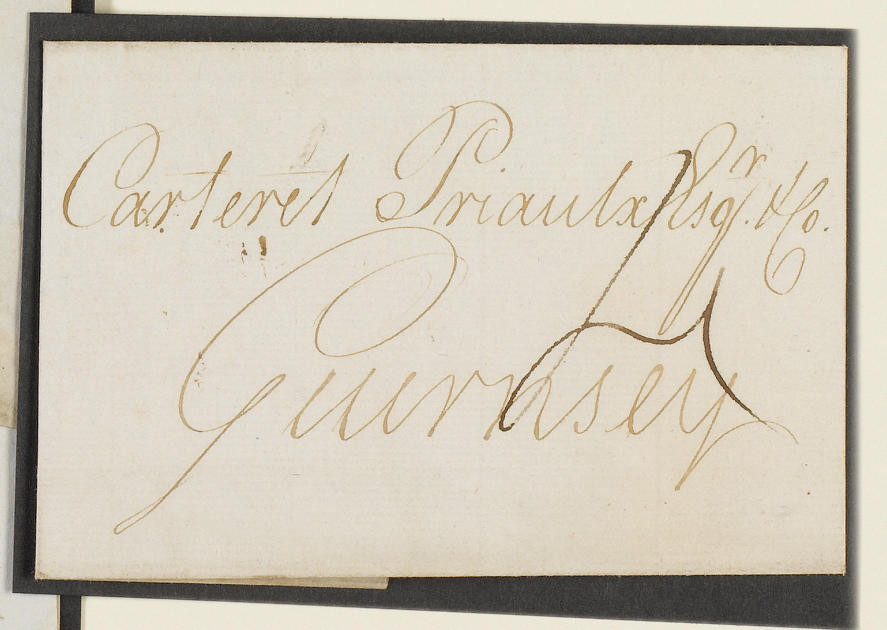 Carteret Priaulx Esqr. & Co.
Guernsey